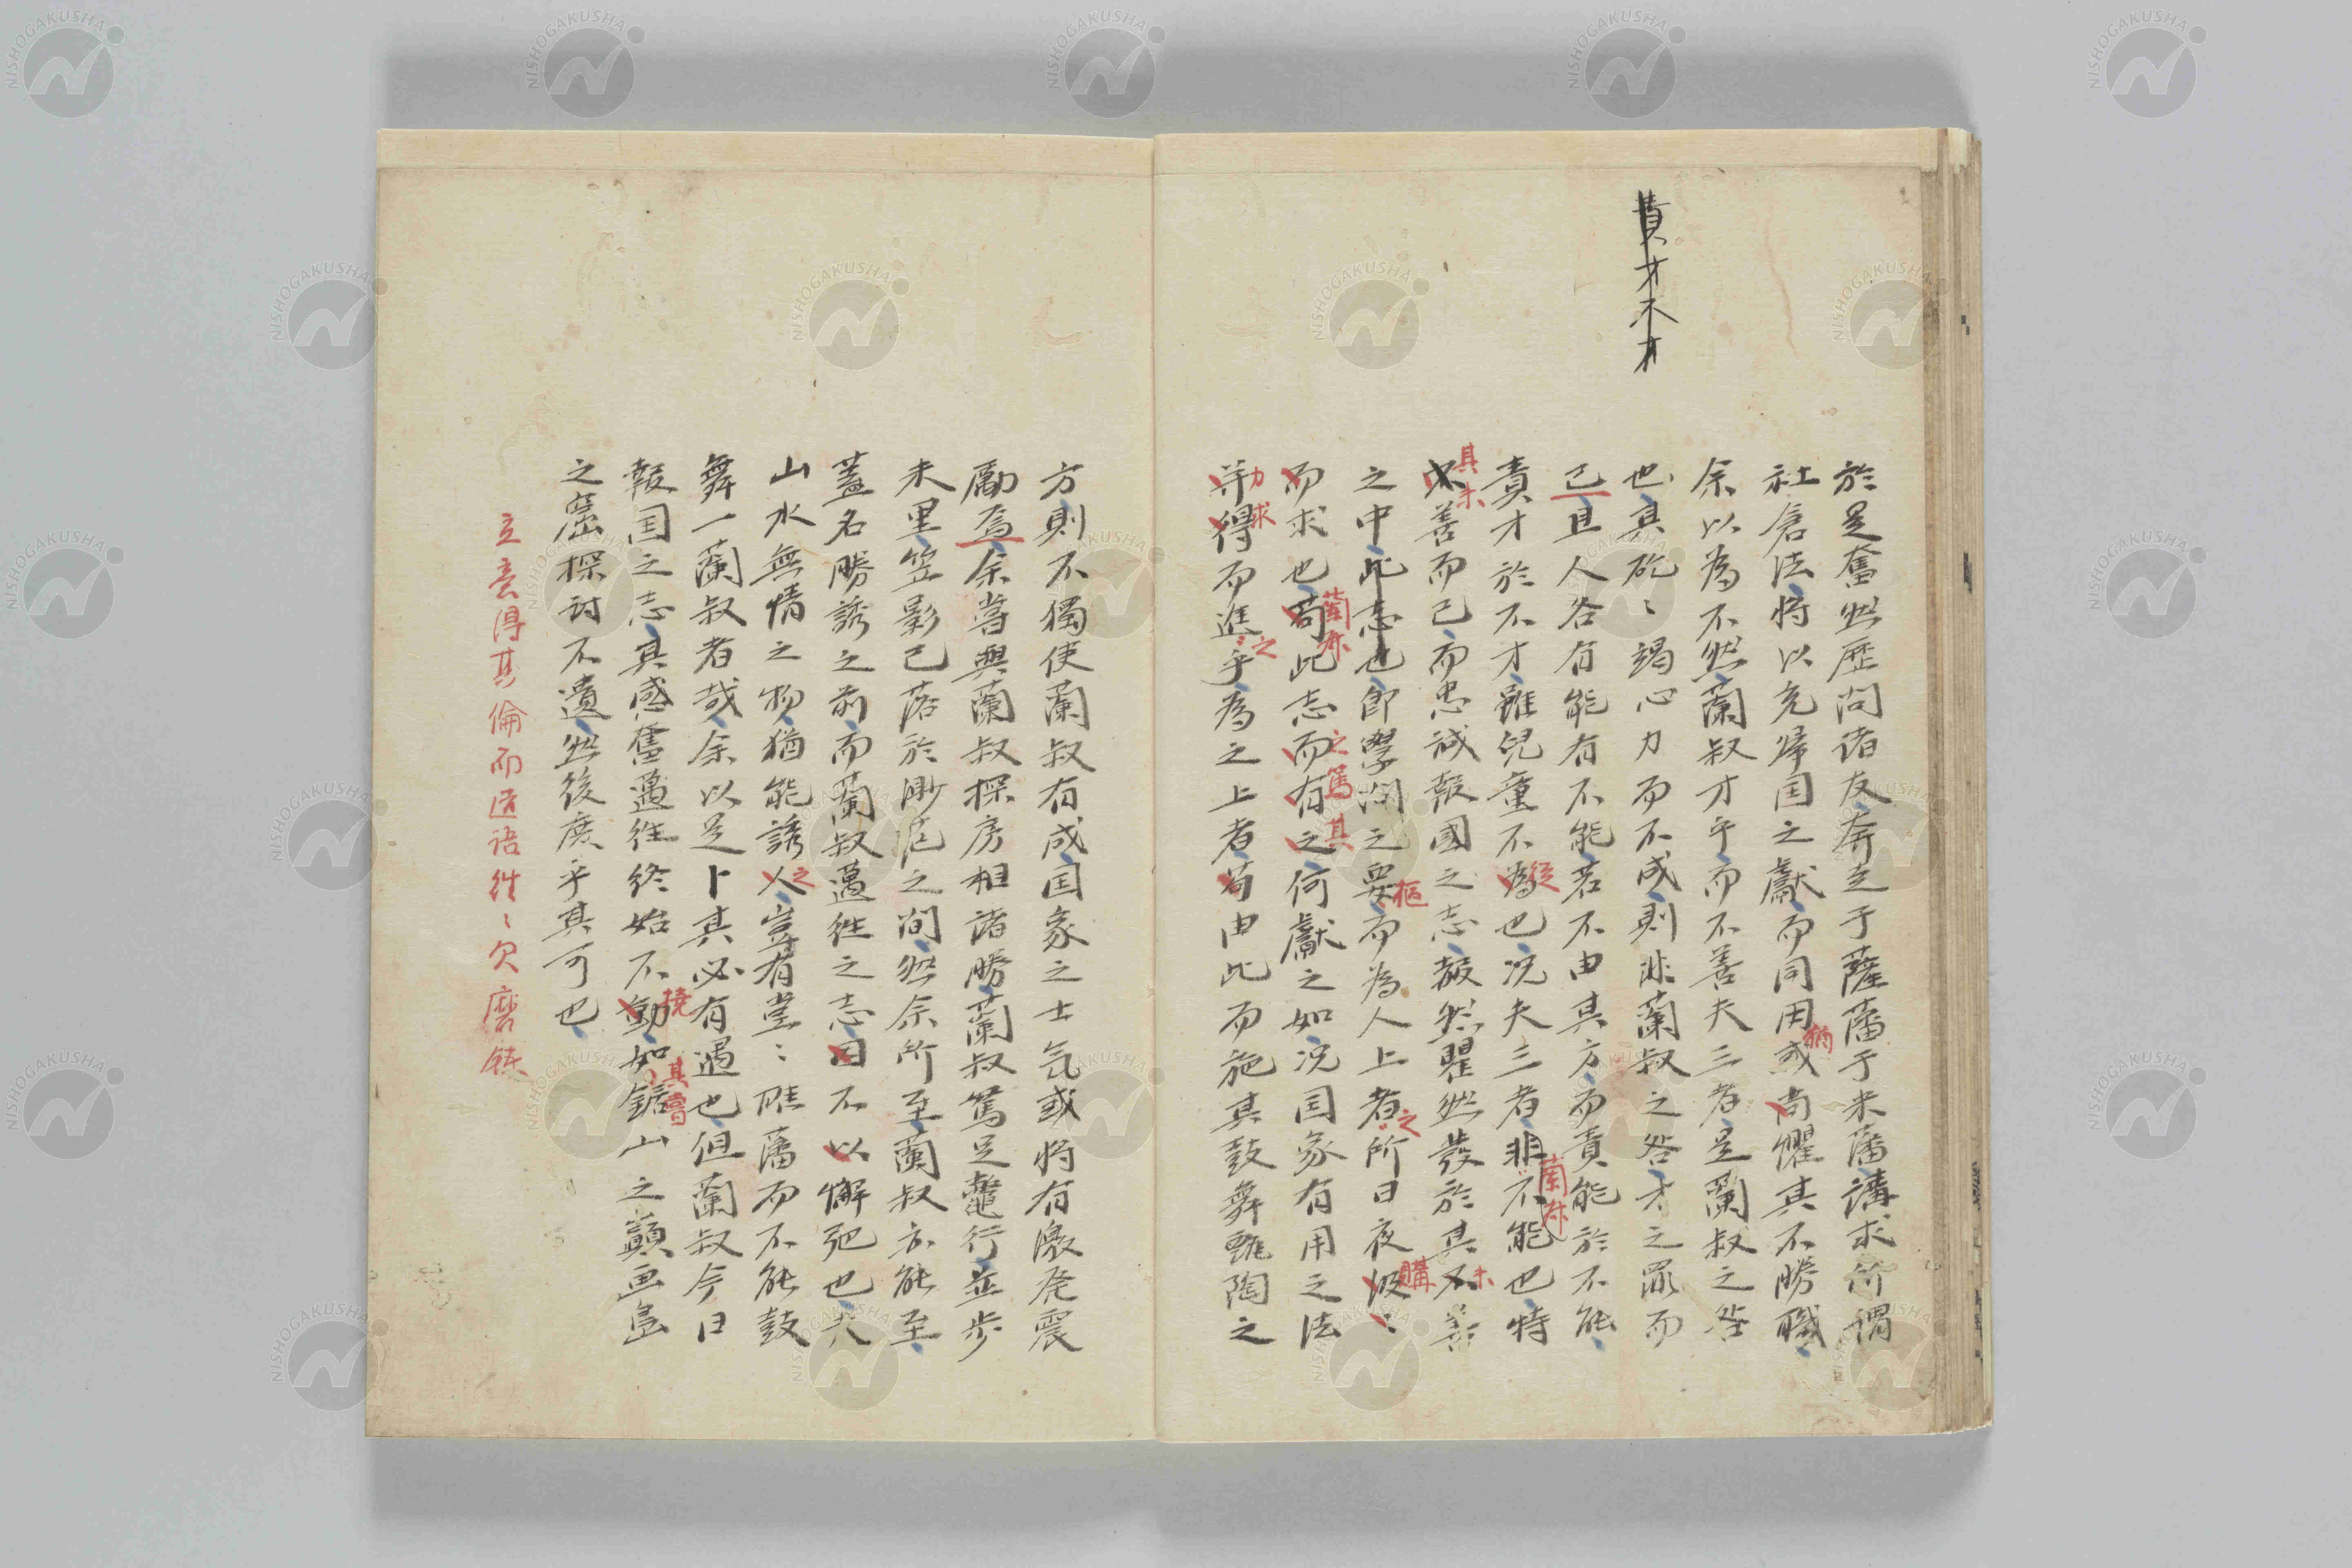 責才不才
於是奮然歴問諸友奔走于薩藩于米藩講求所謂
社倉法将以充帰国之献而同用或尚懼其不勝職
猶
余以為不然蘭叔才乎而不善夫三者是蘭叔之咎
也其矻〻竭心力而不成則非蘭叔之咎才之罪而
已且人各有能有不能若不由其方而責能於不能
責才於不才雖児童不為也况夫三者非不能也特
従
蘭叔
不善而已而忠誠報國之志赧然瞿然發於其不善
其未
未
之中此志也即學問之要而為人上者所日夜汲〻
樞
之
購
而求也苟此志而有之何献之如况国家有用之法
蘭叔
之篤
其
得而進乎為之上者苟由此而施其鼓舞甄陶之
力求
之
方則不獨使蘭叔有成国家之士気或将有激発震
勵焉余嘗與蘭叔探房相諸勝蘭叔篤足鼈行並歩
未里笠影已落於渺茫之間然余所至蘭叔亦能至
蓋名勝誘之前而蘭叔邁往之志因不以懈弛也夫
山水無情之物猶能誘人豈有堂〻雄藩而不能鼓
之
舞一蘭叔者哉余以是卜其必有遇也但蘭叔今日
報国之志其感奮邁往終始不動如鋸山之巓画島
撓
其嘗
之窟探討不遺然後庶乎其可也
立意得其倫而造语往〻欠磨錬